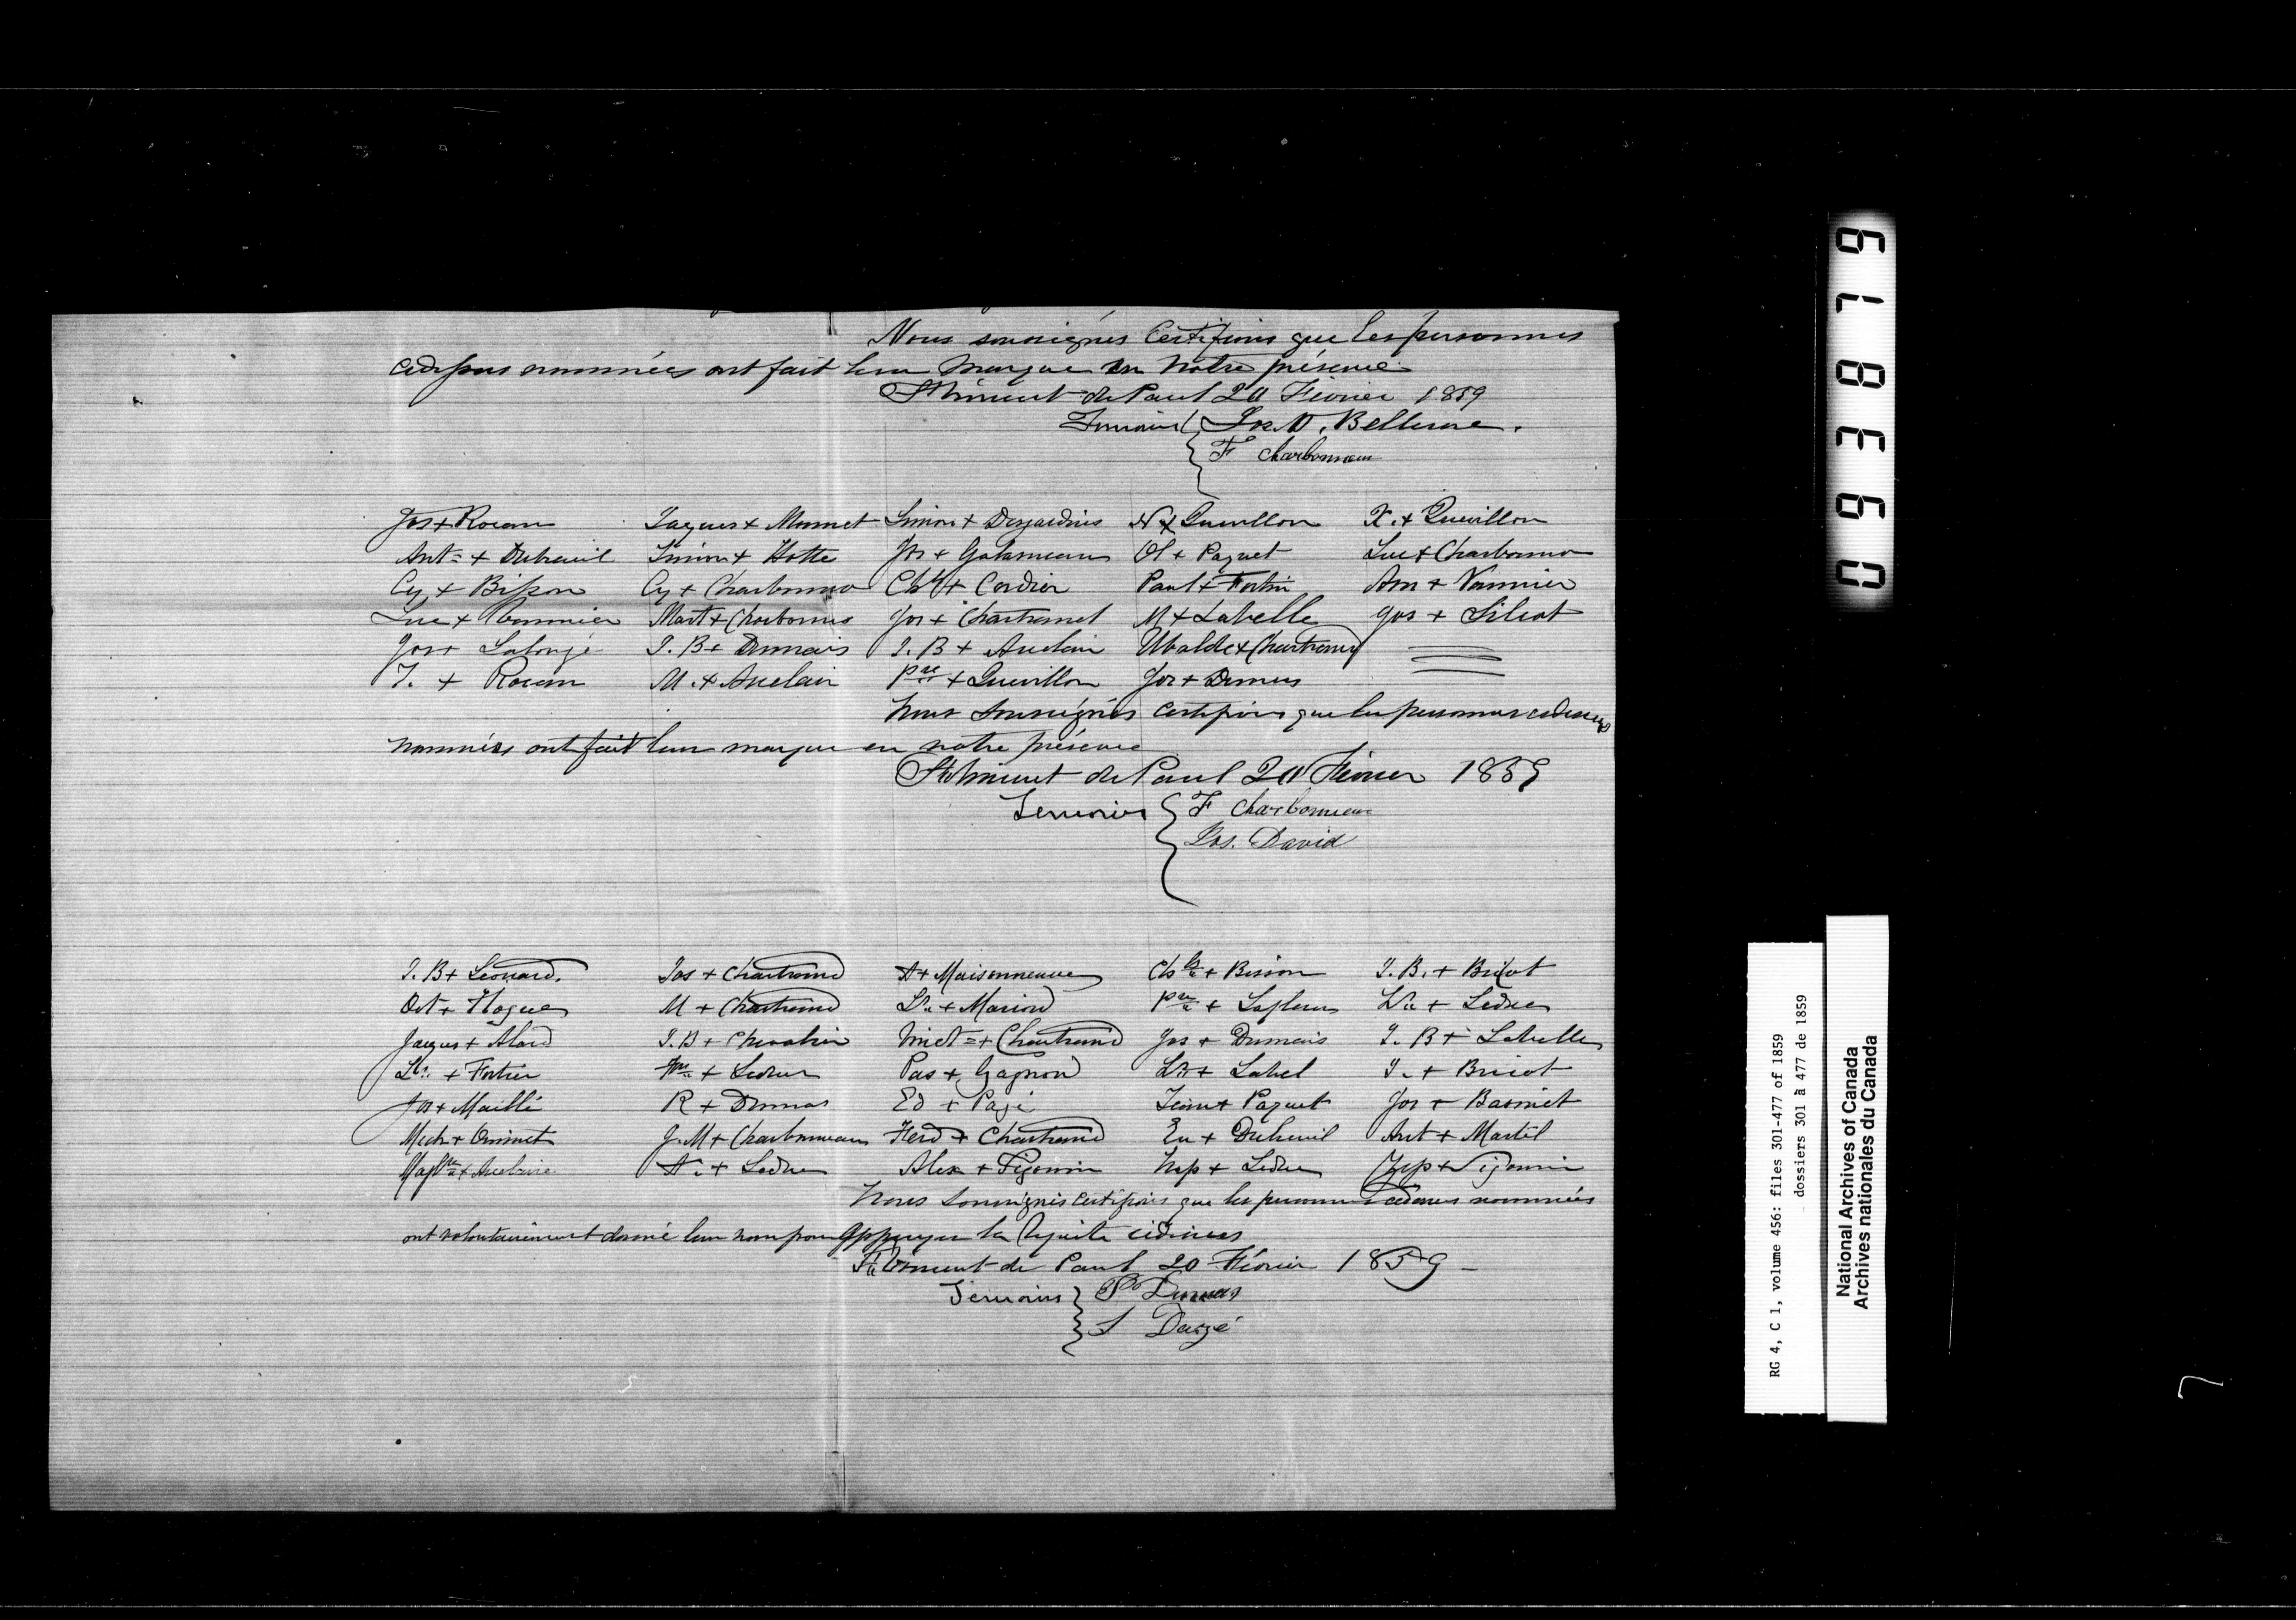 Nous soussignés Certifions que les personnes
cidessus nommées ont fait leur marque en notre présence
St Vincent de Paul 20 Février 1859
Temoins Jos. Bellerose.
F Charbonneau
Jos + Rocan Jaques + Monnet Simon + Desjardins N + Quevillon X. + Quevillon
Ant= + Dubreuil Simon + Hotte Jos + Galarneau Ol + Paquet Luc + Charbonno
Cy + Bisson Cy + Charbonno Chs + Cordier Paul + Fortin Am + Vannier
Luc + Vannier Mart + Charbonno Jos + Chartrand M + Labelle Jos +
Jos + Lalongé J. B + Dumais J. B + Auclair Ubalde + Chartrand
J. + Rocan M. + Auclair Pre + Quevillon Jos + Dumus
Nous Soussignés certifions que les personnes cidessus
nommées ont fait leur marque en notre présence
St Vincent de Paul 20 Février 1859
Temoins F Charbonneau
Jos. David
J. B + Léonard. Jos + Chartrand A + Maisonneuve Chs + Bisson J. B. + Bricot
Oct + Hogue M + Chartrand Ls + Marion Pre + Lafleur Ls + Leduc
Jaques + Alard J. B + Chevalier Vinct= + Chartrand Jos + Dumais J. B + Labelle
Ls. + Fortier + Leduc Pas + Gagnon Ls + Label J. + Bricot
Jos + Maillé R + Dumas Ed + Pagé + Paquet Jos + Basinet
Mich + Ouimet J. M + Charbonneau Ferd + Chartrand Eu + Dubreuil Ant + Martel
A. + Leduc Alex + Pigeon Nap + Leduc
Nous Soussignés certifions que les personnes cidessus nommées
ont volontairement donné leur nom pour appuyer la Requête cidessus
St Vincent de Paul 20 Février 1859 -
Temoins P Dumas
S Dagé
093879
RG 4, C 1, volume 456: files 301-477 of 1859
dossiers 301 à 477 de 1859
National Archives of Canada
Archives nationales du Canada
7